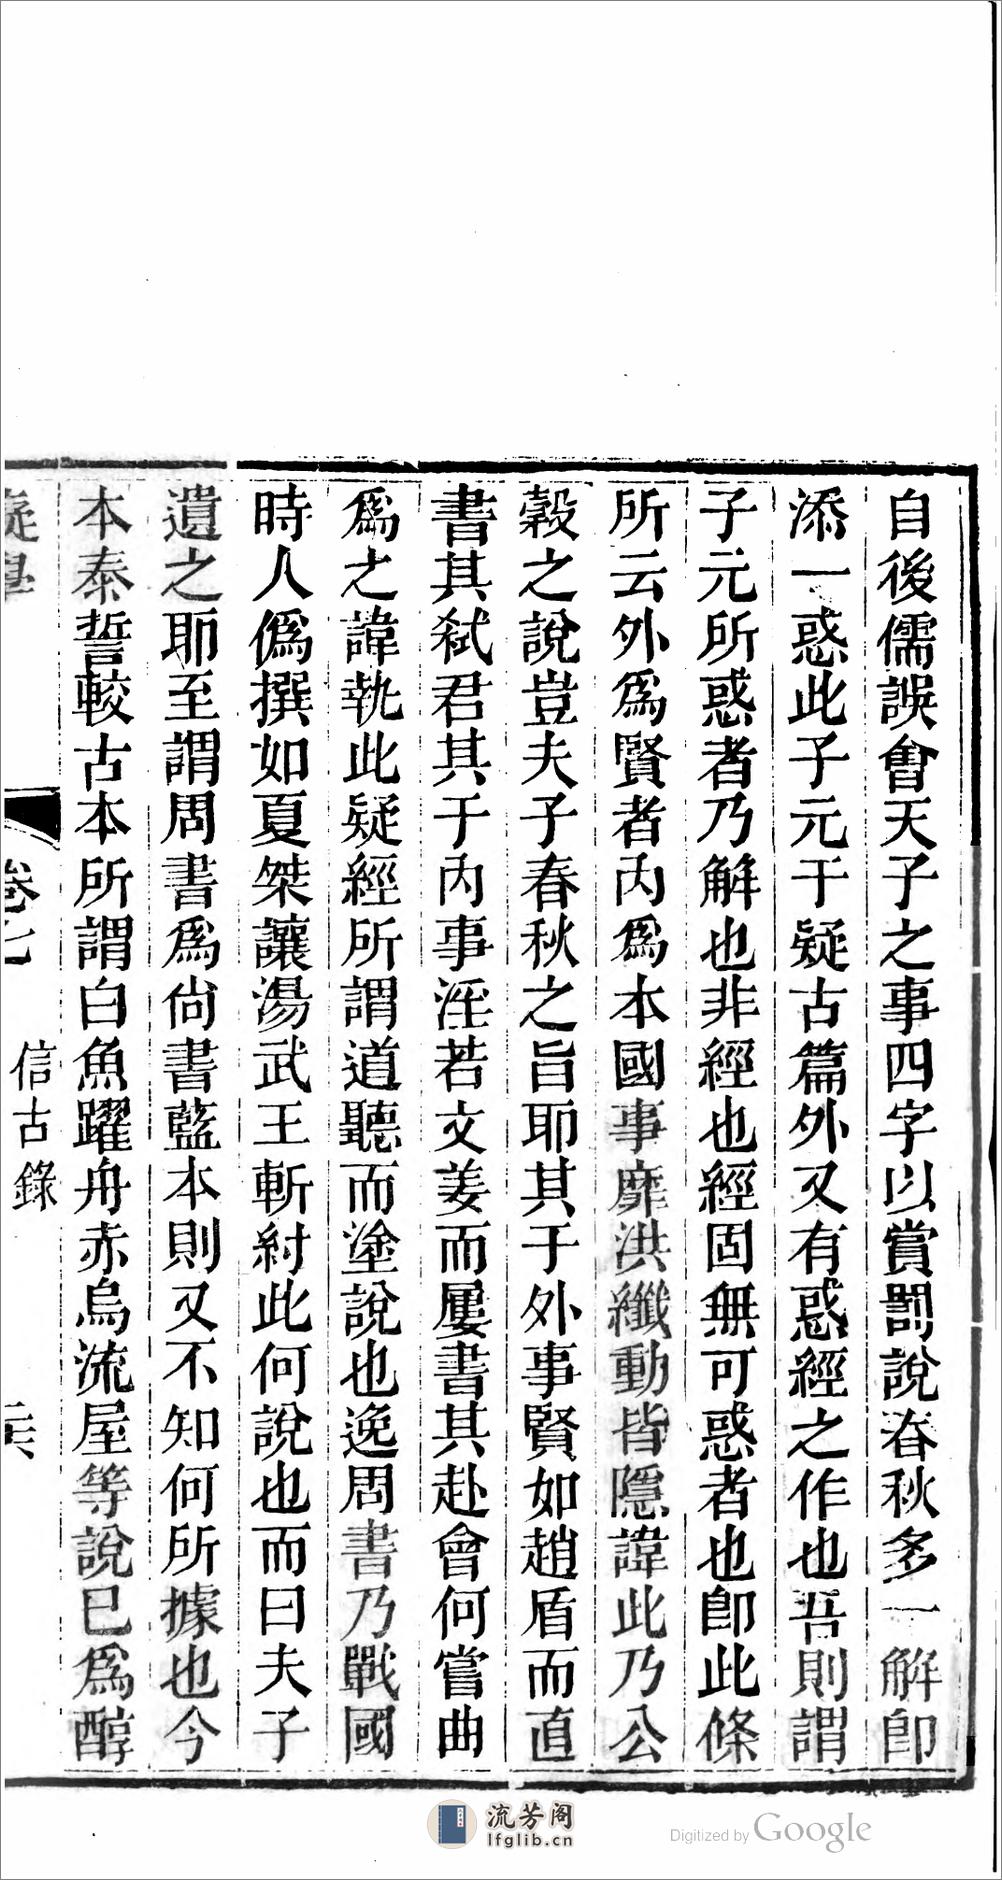 自後儒誤會天子之事四字以賞罰說春秋多一解卽
添一惑此子元于疑古篇外又有惑經之作也吾則謂
子元所惑者乃解也非經也經固無可惑者也卽此條
所云外爲賢者內爲本國事靡洪纖動皆隱諱此乃公
穀之說豈夫子春秋之旨耶其于外事賢如趙盾而直
書其弑君其于內事淫若文姜而屢書其赴會何嘗曲
爲之諱執此疑經所謂道聽而塗說也逸周書乃戰國
時人僞撰如夏桀讓湯武王斬紂此何說也而曰夫子
遺之耶至謂周書爲尙書藍本則又不知何所據也今
本泰誓較古本所謂白魚躍舟赤烏流屋等說已爲醇
卷七
信古錄
流芳阁
lfglib.cn
Digitized by Google